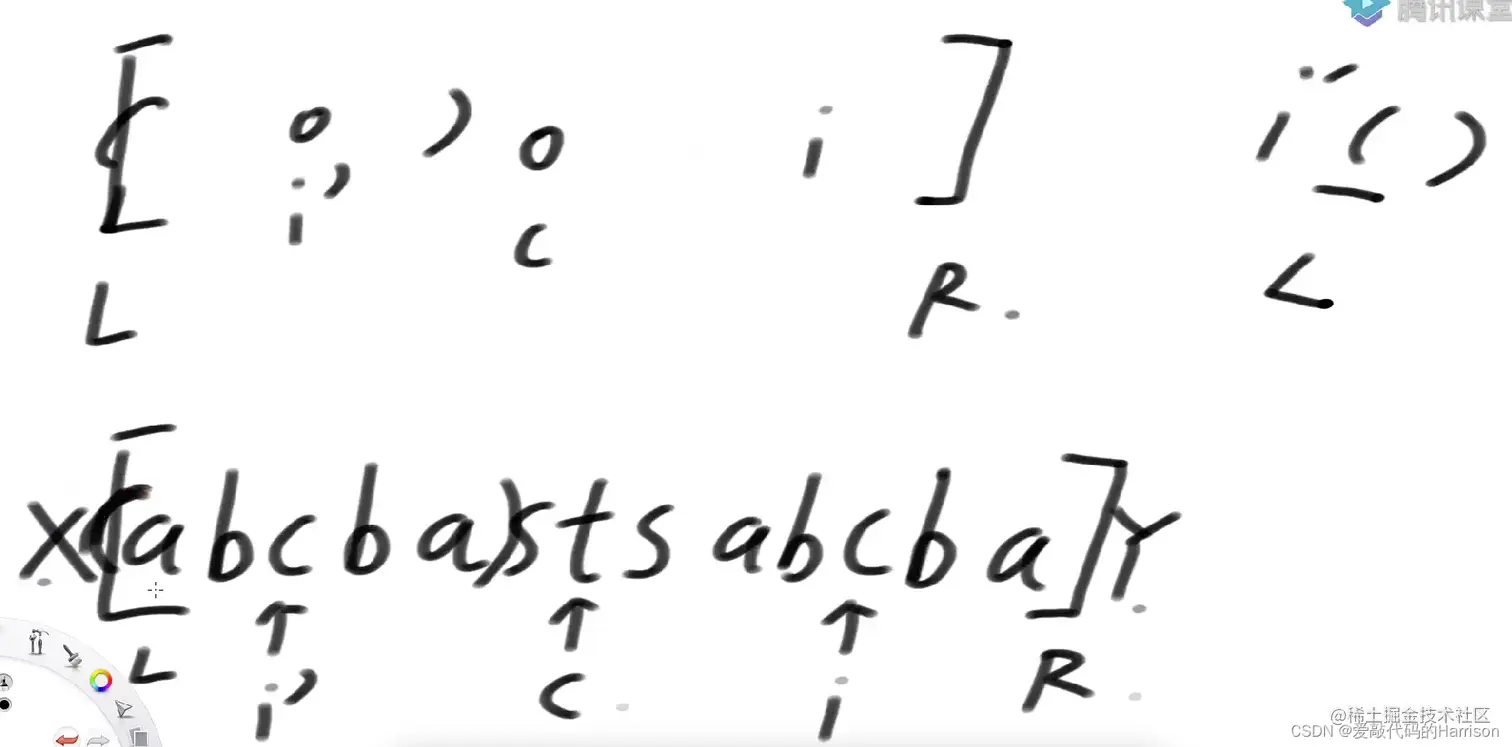 腾讯课堂
[ ( o ) o i ] i' ( )
i' c
L R . L
X [ ( a b c b a ) s t s a b c b a ] Y
↑ ↑ ↑
L i' c i R
@稀土掘金技术社区
CSDN @爱敲代码的Harrison